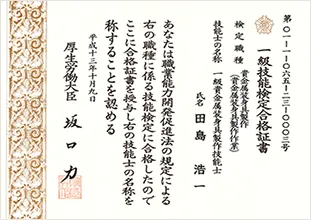 第〇一-一-〇六五-二三-〇〇〇三号
一級技能検定合格証書
検定職種 貴金属装身具製作
(貴金属装身具製作作業)
技能士の名称 一級貴金属装身具製作技能士
氏名 田島 浩一
あなたは職業能力開発促進法の規定による
右の職種に係る技能検定に合格したので
ここに合格証書を授与し右の技能士の名称を
称することを認める
平成十三年十月九日
厚生労働大臣 坂口力